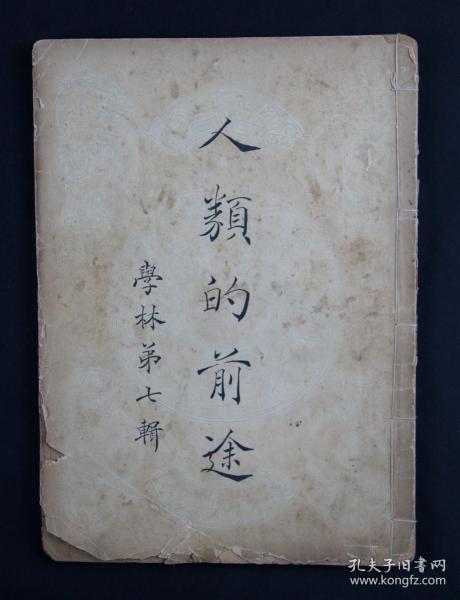 人類的前途
學林第七輯
孔夫子旧书网
www.kongfz.com